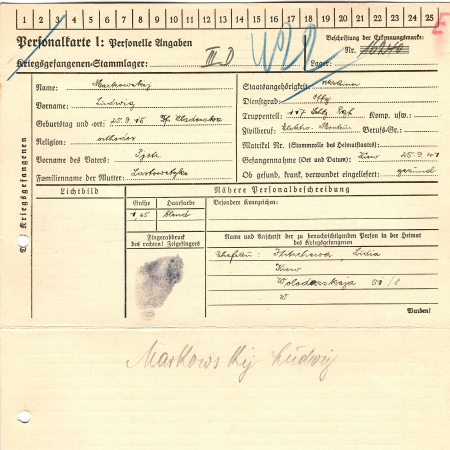 1 2 3 4 5 6 7 8 9 10 11 12 13 14 15 16 17 18 19 20 21 22 23 24 25
Personalkarte I: Personelle Angaben
Kriegsgefangenen-Stammlager: III D
422
Beschriftung der Erkennungsmarke:
Nr.
Lager:
Des Kriegsgefangenen
Name: Markowskij
Vorname: Ludwig
Geburtstag und -ort: 25.9.15
Religion: orthodox
Vorname des Vaters: Pjotr
Familienname der Mutter:
Staatsangehörigkeit: Ukrainer
Dienstgrad:
Truppenteil: Komp. usw.:
Zivilberuf: Elektro-Monteur Berufs-Gr.:
Matrikel Nr. (Stammrolle des Heimatstaates):
Gefangennahme (Ort und Datum): Kiew 25.9.41
Ob gesund, krank, verwundet eingeliefert: gesund
Lichtbild
Nähere Personalbeschreibung
Größe Haarfarbe Besondere Kennzeichen:
1,65 blond
Fingerabdruck
des rechten! Zeigefingers
Name und Anschrift der zu benachrichtigenden Person in der Heimat
des Kriegsgefangenen
Ehefrau: Lidia
Kiew
Wolodarskaja /8
Wenden!
Markowskij Ludwig